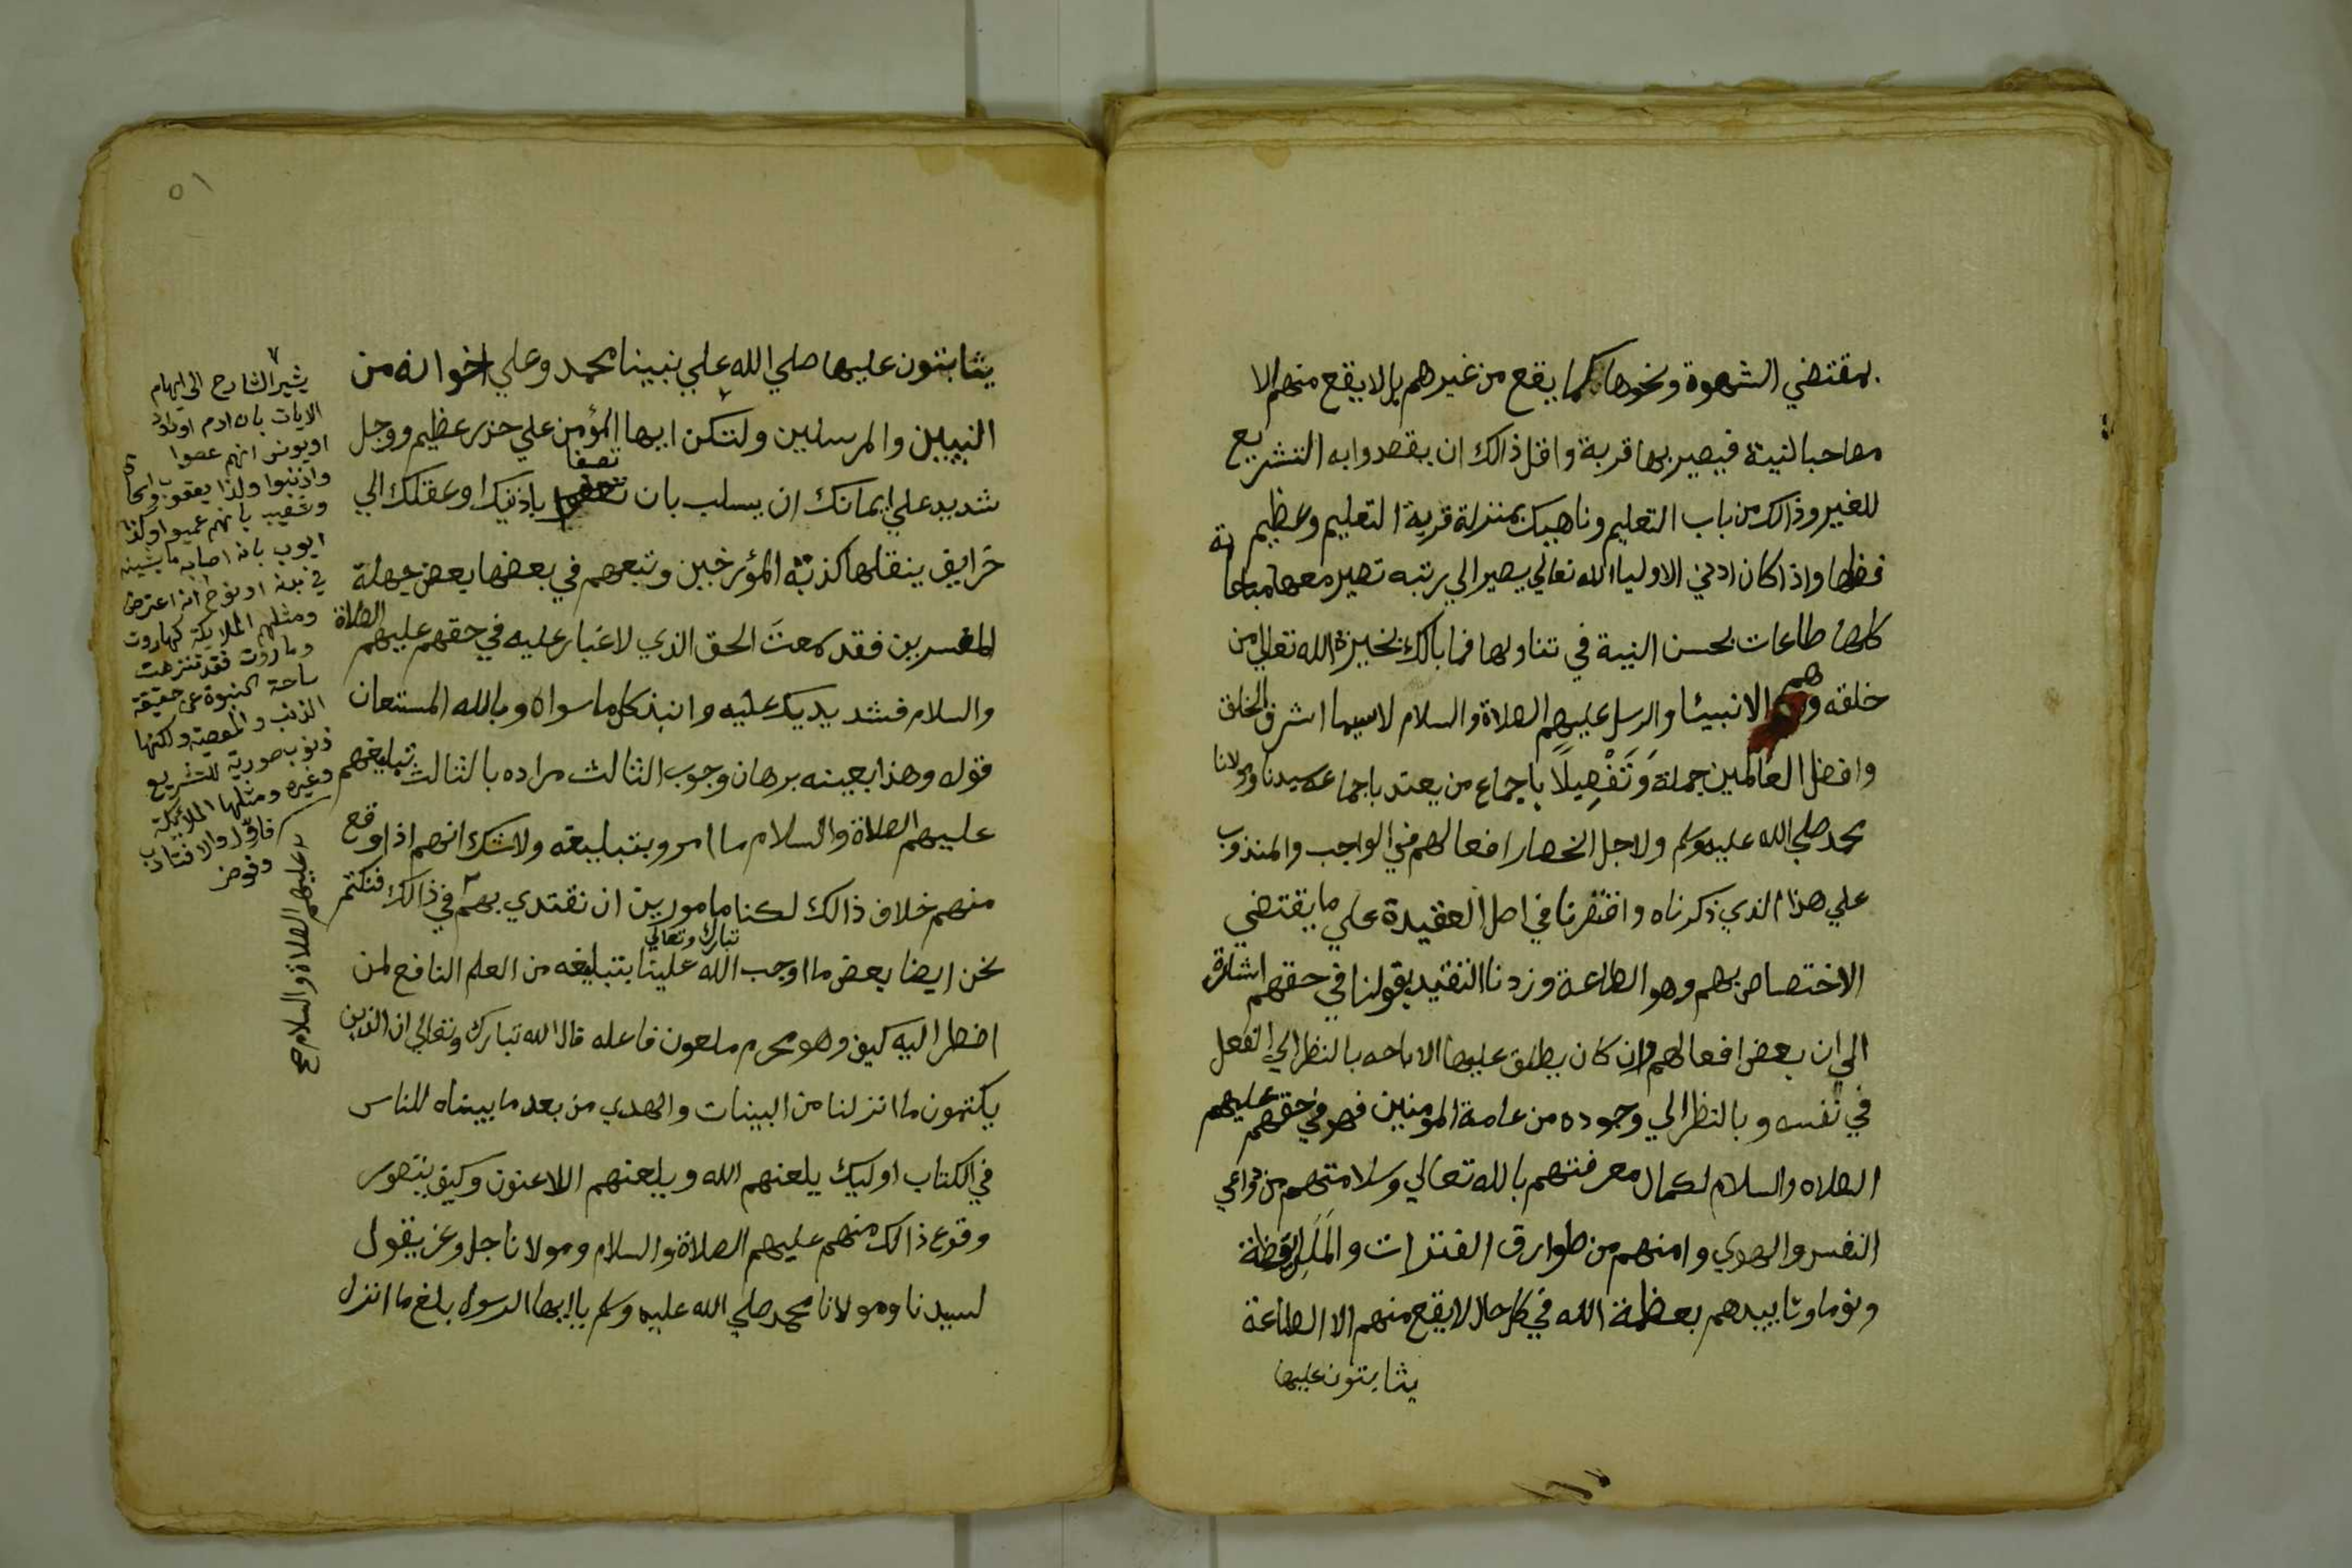 بمقتضي الشهوة ونحوها كما يقع من غيرهم بل لا يقع منهم الا
مصاحبا لنية فيصير بها قربة واقل ذالك ان يقصدوا به التشريع
للغير وذالك من باب التعليم وناهيك بمنزلة قربة التعليم وعظيم
فضلها واذا كان ادني الاوليا الله تعالي يصير الي رتبه تصير معها مباحاته
كلها طاعات بحسن النية في تناولها فما بالك بخيرة الله تعالي من
خلقه وهم الانبيئا والرسل عليهم الصلاة والسلام لا سيما اشرف الخلق
وافضل العالمين جملة وَتَفْصِيلًا باجماع من يعتد باجماعه سيدنا ومولانا
محمد صلي الله عليه وسلم ولاجل انحصار افعالهم في الواجب والمندوب
علي هذا الذي ذكرناه واقتصرنا في اصل العقيدة علي ما يقتضي
الاختصاص بهم وهو الطاعة وزدنا التقييد بقولنا في حقهم اشارة
الي ان بعض افعالهم وان كان يطلق عليها الاباحه بالنظر الي الفعل
في نفسه وبالنظر الي وجوده من عامة المومنين فهو في حقهم عليهم
الصلاه والسلام لكمال معرفتهم بالله تعالي وسلامتهم من دواعي
النفس والهوي وامنهم من طوارق الفترات والمَلَل يقظة
ونوما وتاييدهم بعظمة الله في كل حال لا يقع منهم الا الطاعة
يثابتون عليها
٥١
يثابتون عليها صلي الله علي نبينا محمد وعلي اخوانه من
النبيين والمرسلين ولتكن ايها المؤمن علي حزر عظيم ووجل
شديد علي ايمانك ان يسلب بان تصغا باذنيك اوعقلك الي
خرايف ينقلها كذبة المؤرخين وتبعهم في بعضها بعض جهلة
المفسرين فقد سمعتَ الحق الذي لا غبار عليه في حقهم عليهم الصلاة
والسلام فشد يديك عليه وانبذ كل ما سواه وبالله المستعان
قوله وهذا بعينه برهان وجوب الثالث مراده بالثالث تبليغهم
عليهم الصلاة والسلام ما امروا بتبليغه ولا شك انهم اذا وقع
منهم خلاف ذالك لكنا مامورين ان نقتدي بهم في ذالك فنكتم
نحن ايضا بعض ما اوجب الله تبارك وتعالي علينا بتبليغه من العلم النافع لمن
اضطر اليه كيف وهو محرم ملعون فاعله قال الله تبارك وتعالي ان الذين
يكتمون ما انزلنا من البينات والهدي من بعد ما بيناه للناس
في الكتاب اوليك يلعنهم الله ويلعنهم اللاعنون وكيف يتصور
وقوع ذالك منهم عليهم الصلاة والسلام ومولانا جل وعز يقول
لسيدنا ومولانا محمد صلي الله عليه وسلم يا ايها الرسول بلغ ما انزل
يشير الشارح الى ابهام
الايات بان ادم اوداود
اويونس انهم عصوا
واذنبوا ولذا يعقوب
وشعيب بانهم عميوا وكذا
ايوب بانه اصابه ما يشينه
في بدنه او نوح انه اعترض
ومثلهم الملايكة كهاروت
وماروت فقد تنزهت
ساحة النبوة عن حقيقة
الذنب والمعصية ولكنها
ذنوب صورية للتشريع
وغيره ومثلها الملايكة
فاوّل والا فتادب
وفوض
عليهم الصلاة والسلام صح